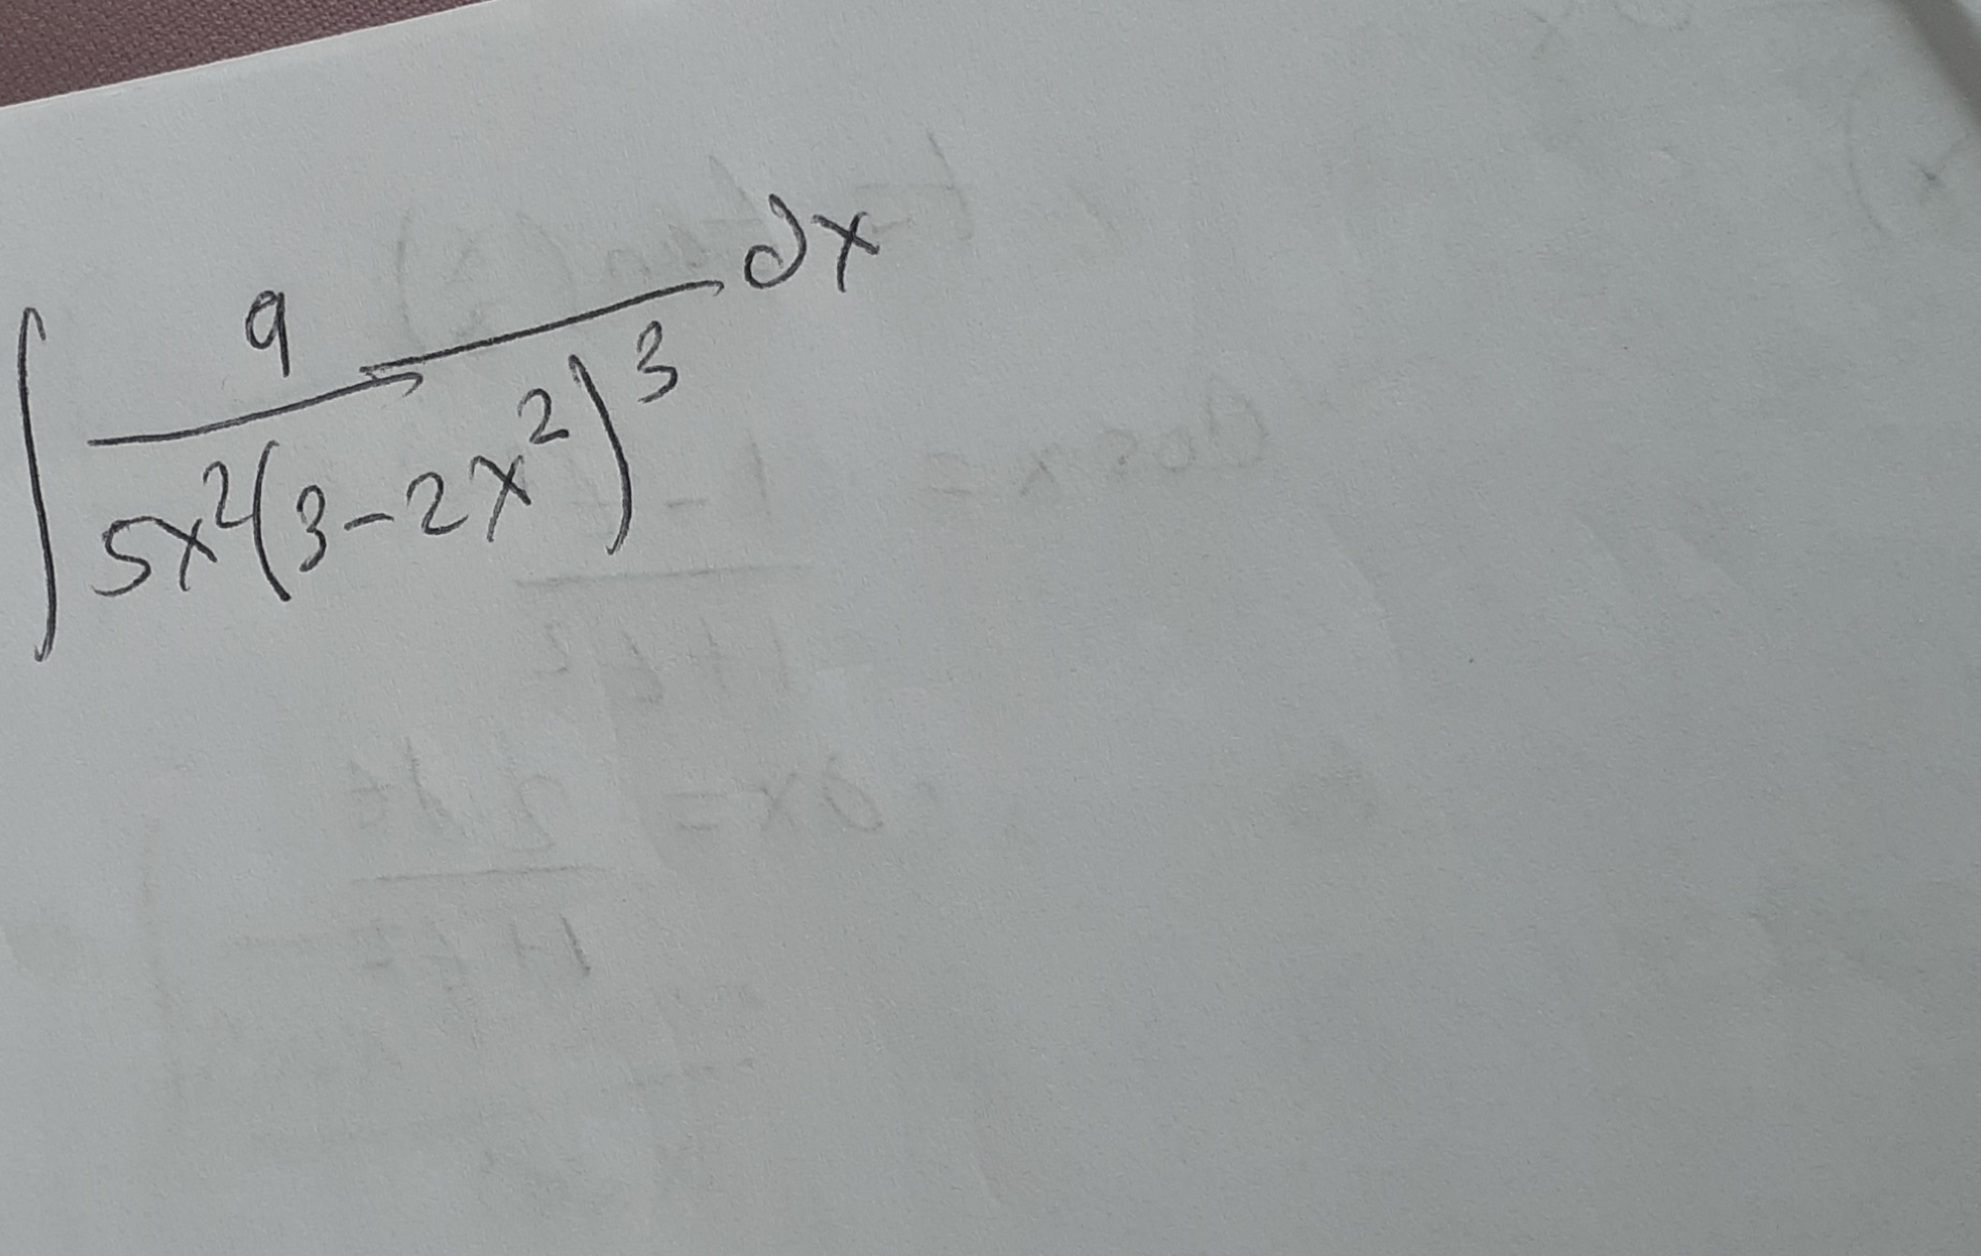 ∫ 9 / 5x²(3-2x²)³ dx